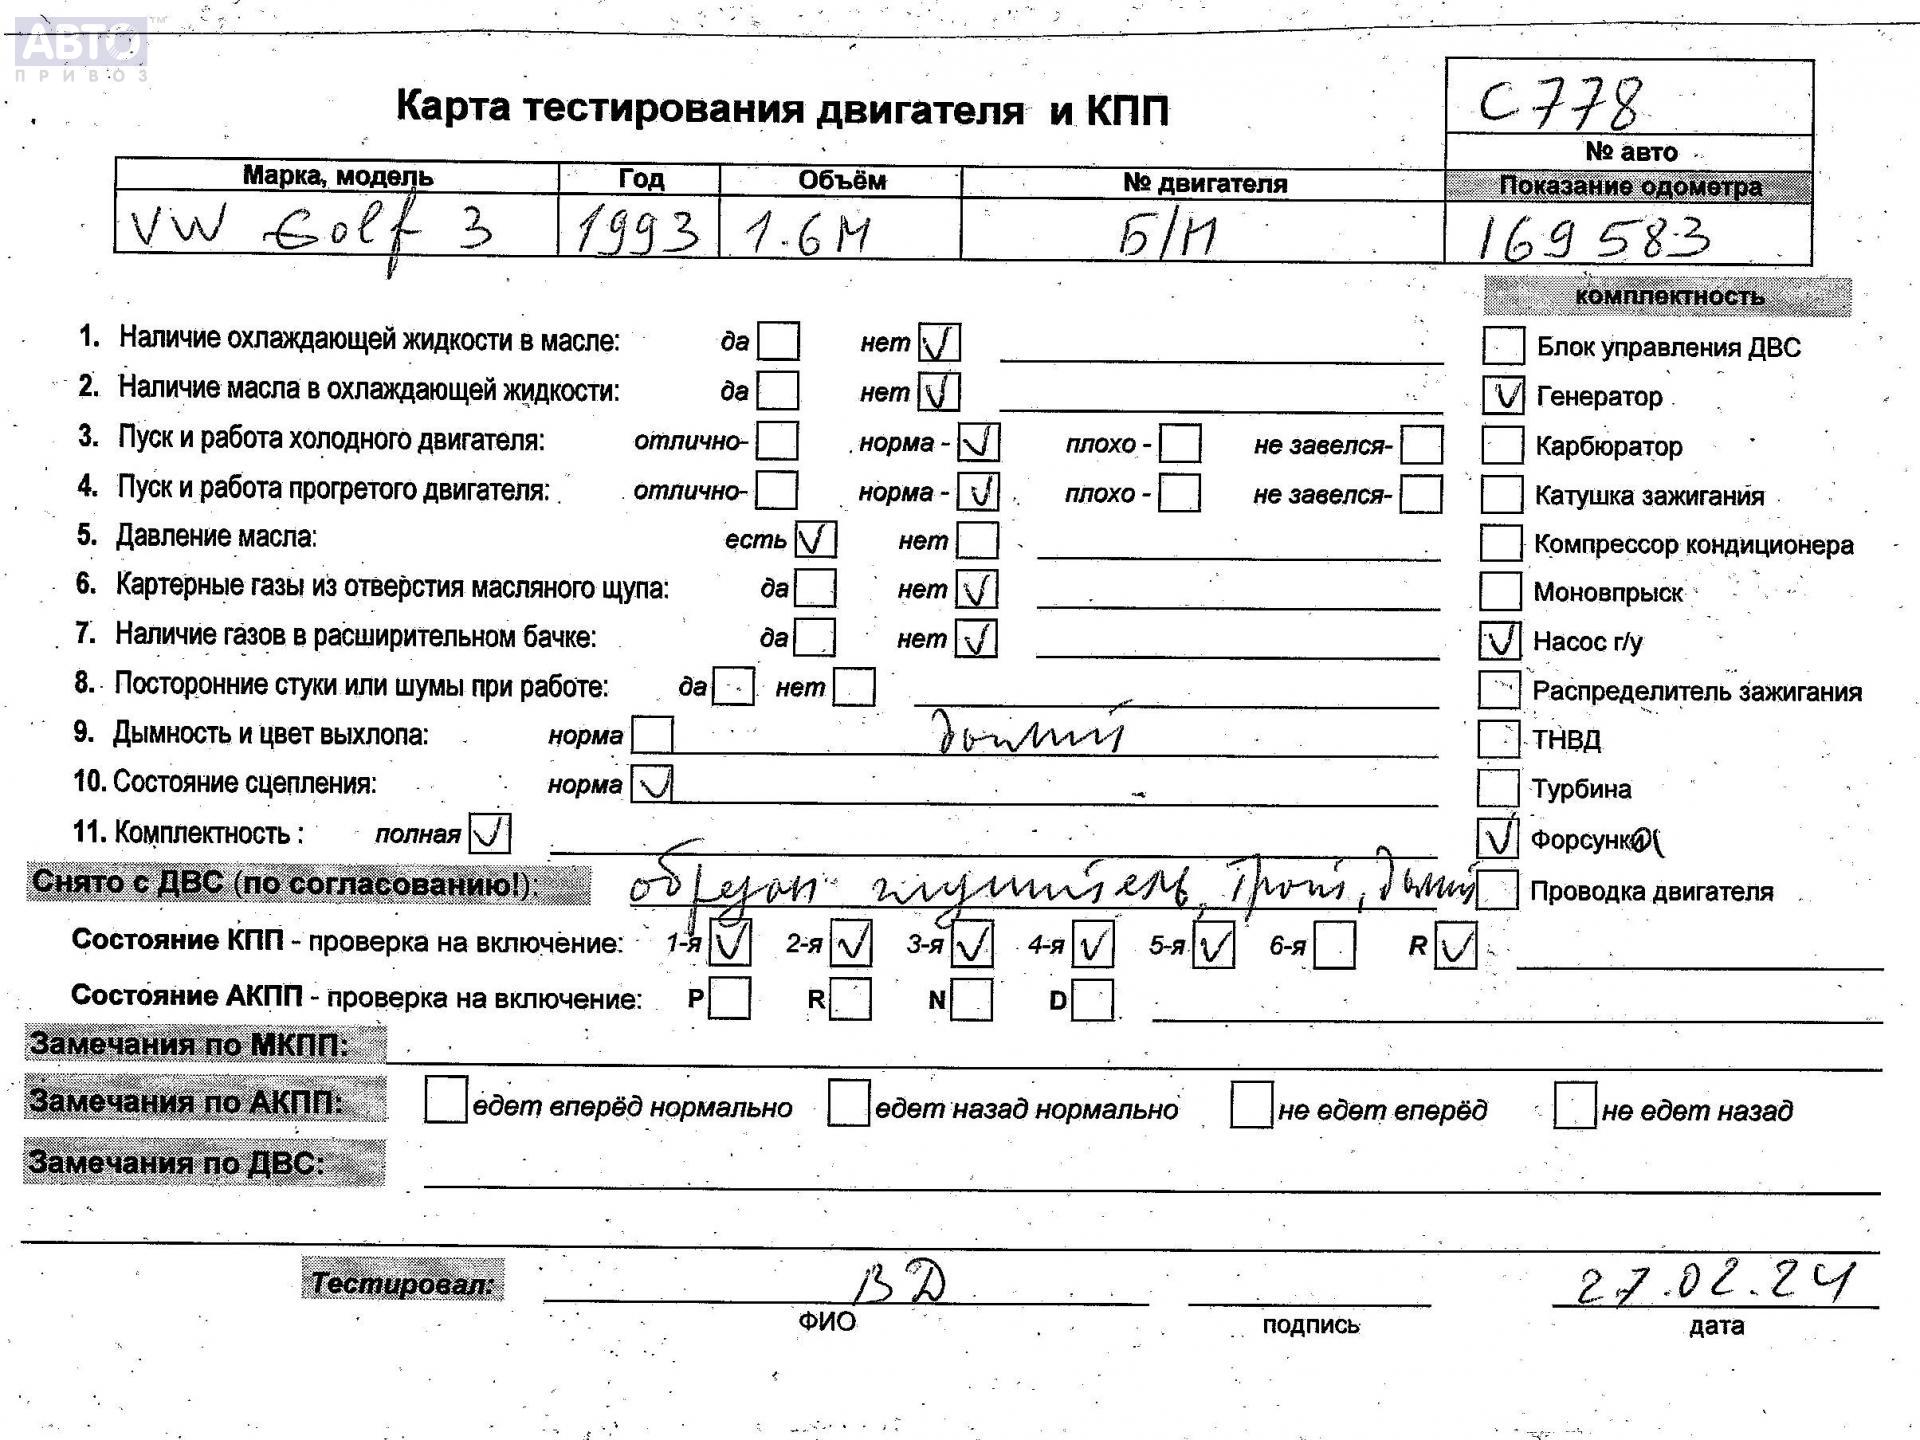 АВТО™
ПРИВОЗ
Карта тестирования двигателя и КПП
С778
№ авто
Марка, модель Год Объём № двигателя Показание одометра
VW Golf 3 1993 1.6М Б/Н 169583
комплектность
1. Наличие охлаждающей жидкости в масле: да нет Блок управления ДВС
2. Наличие масла в охлаждающей жидкости: да нет Генератор
3. Пуск и работа холодного двигателя: отлично- норма - плохо - не завелся- Карбюратор
4. Пуск и работа прогретого двигателя: отлично- норма - плохо - не завелся- Катушка зажигания
5. Давление масла: есть нет Компрессор кондиционера
6. Картерные газы из отверстия масляного щупа: да нет Моновпрыск
7. Наличие газов в расширительном бачке: да нет Насос г/у
8. Посторонние стуки или шумы при работе: да нет Распределитель зажигания
9. Дымность и цвет выхлопа: норма дымит ТНВД
10. Состояние сцепления: норма Турбина
11. Комплектность : полная Форсунки
Снято с ДВС (по согласованию!): обрезан глушитель, троит, дымит Проводка двигателя
Состояние КПП - проверка на включение: 1-я 2-я 3-я 4-я 5-я 6-я R
Состояние АКПП - проверка на включение: P R N D
Замечания по МКПП:
Замечания по АКПП: едет вперёд нормально едет назад нормально не едет вперёд не едет назад
Замечания по ДВС:
Тестировал: ВД 27.02.24
ФИО подпись дата